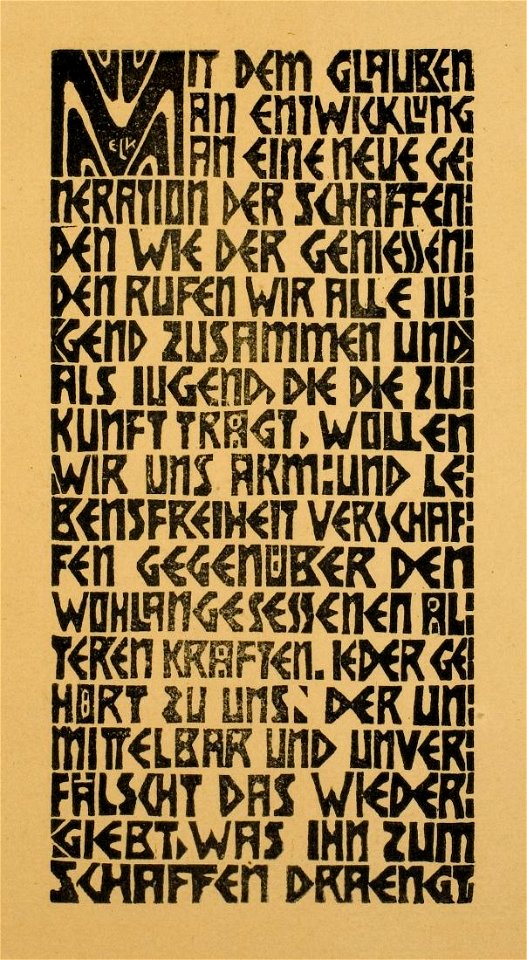 MIT DEM GLAUBEN
AN ENTWICKLUNG
AN EINE NEUE GE:
NERATION DER SCHAFFEN:
DEN WIE DER GENIESSEN:
DEN RUFEN WIR ALLE IU:
GEND ZUSAMMEN UND
ALS IUGEND, DIE DIE ZU:
KUNFT TRÄGT, WOLLEN
WIR UNS ARM:UND LE:
BENSFREIHEIT VERSCHAF:
FEN GEGENÜBER DEN
WOHLANGESESSENEN ÄL:
TEREN KRÄFTEN. IEDER GE:
HÖRT ZU UNS, DER UN:
MITTELBAR UND UNVER:
FÄLSCHT DAS WIEDER:
GIEBT, WAS IHN ZUM
SCHAFFEN DRAENGT
ELK